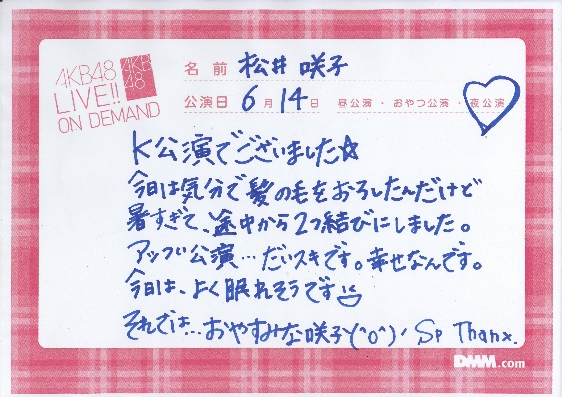 AKB48
LIVE!!
ON DEMAND
AKB
48
名前 松井 咲子
公演日 6月14日 昼公演・おやつ公演・夜公演
K公演でございました☆
今日は気分で髪の毛をおろしたんだけど
暑すぎて、途中から2つ結びにしました。
アップル公演…だいスキです。幸せなんです。
今日は、よく眠れそうです
それでは…おやすみな咲子\(^o^)/ Sp Thanx.
DMM.com